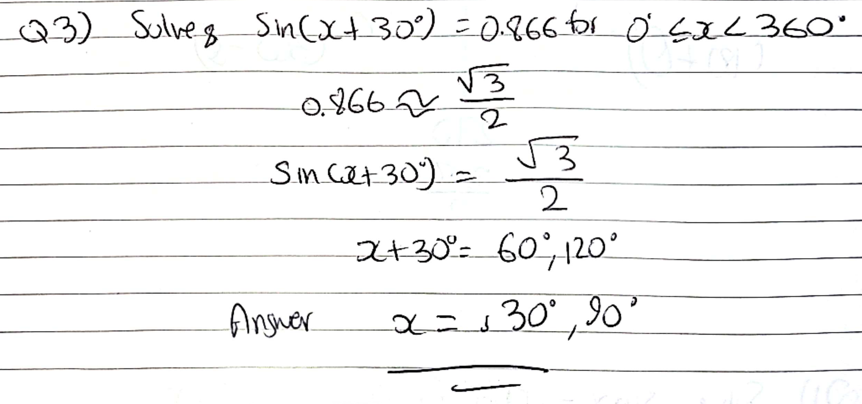 Q3) Solve 8 Sin(x+30°) = 0.866 for 0° ≤ x < 360°
0.866 ≈ √3/2
Sin(x+30°) = √3/2
x+30° = 60°, 120°
Answer x = , 30°, 90°